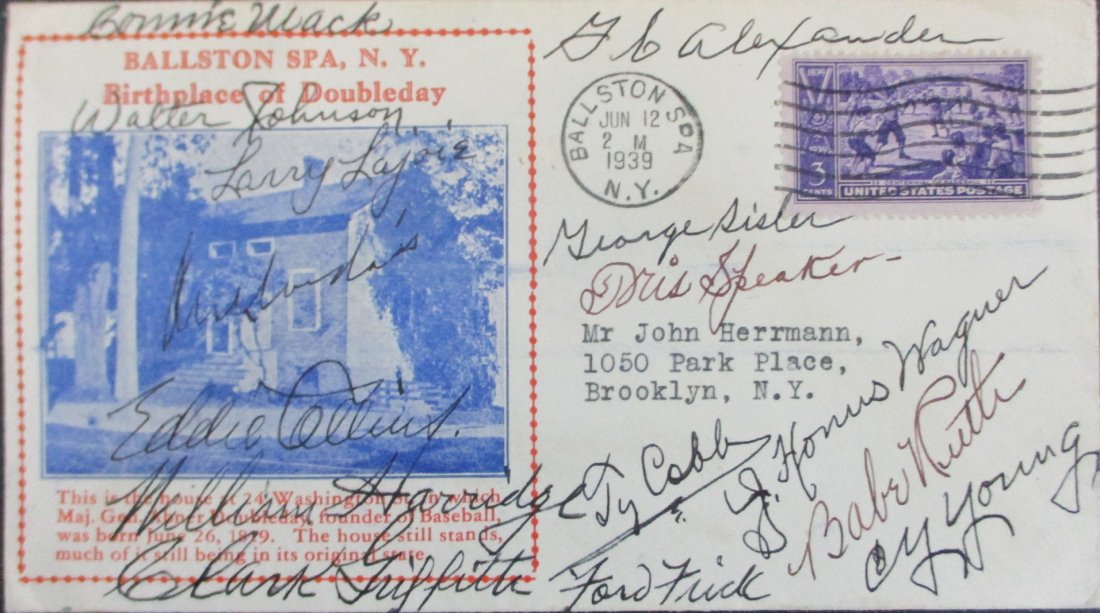 Connie Mack
BALLSTON SPA, N. Y.
Birthplace of Doubleday
Walter Johnson
Larry Lajoie
Eddie Collins.
William Harridge
This is the house at 24 Washington St. in which
Maj. Gen. Abner Doubleday, founder of Baseball,
was born June 26, 1819. The house still stands,
much of it still being in its original state.
Clark Griffith
G C Alexander
BALLSTON SPA
JUN 12
2 M
1939
N.Y.
1839
1939
3 CENTS
UNITED STATES POSTAGE
George Sisler
Tris Speaker
Mr John Herrmann,
1050 Park Place,
Brooklyn, N.Y.
Ty Cobb
J. Honus Wagner
Babe Ruth
Cy Young
Ford Frick